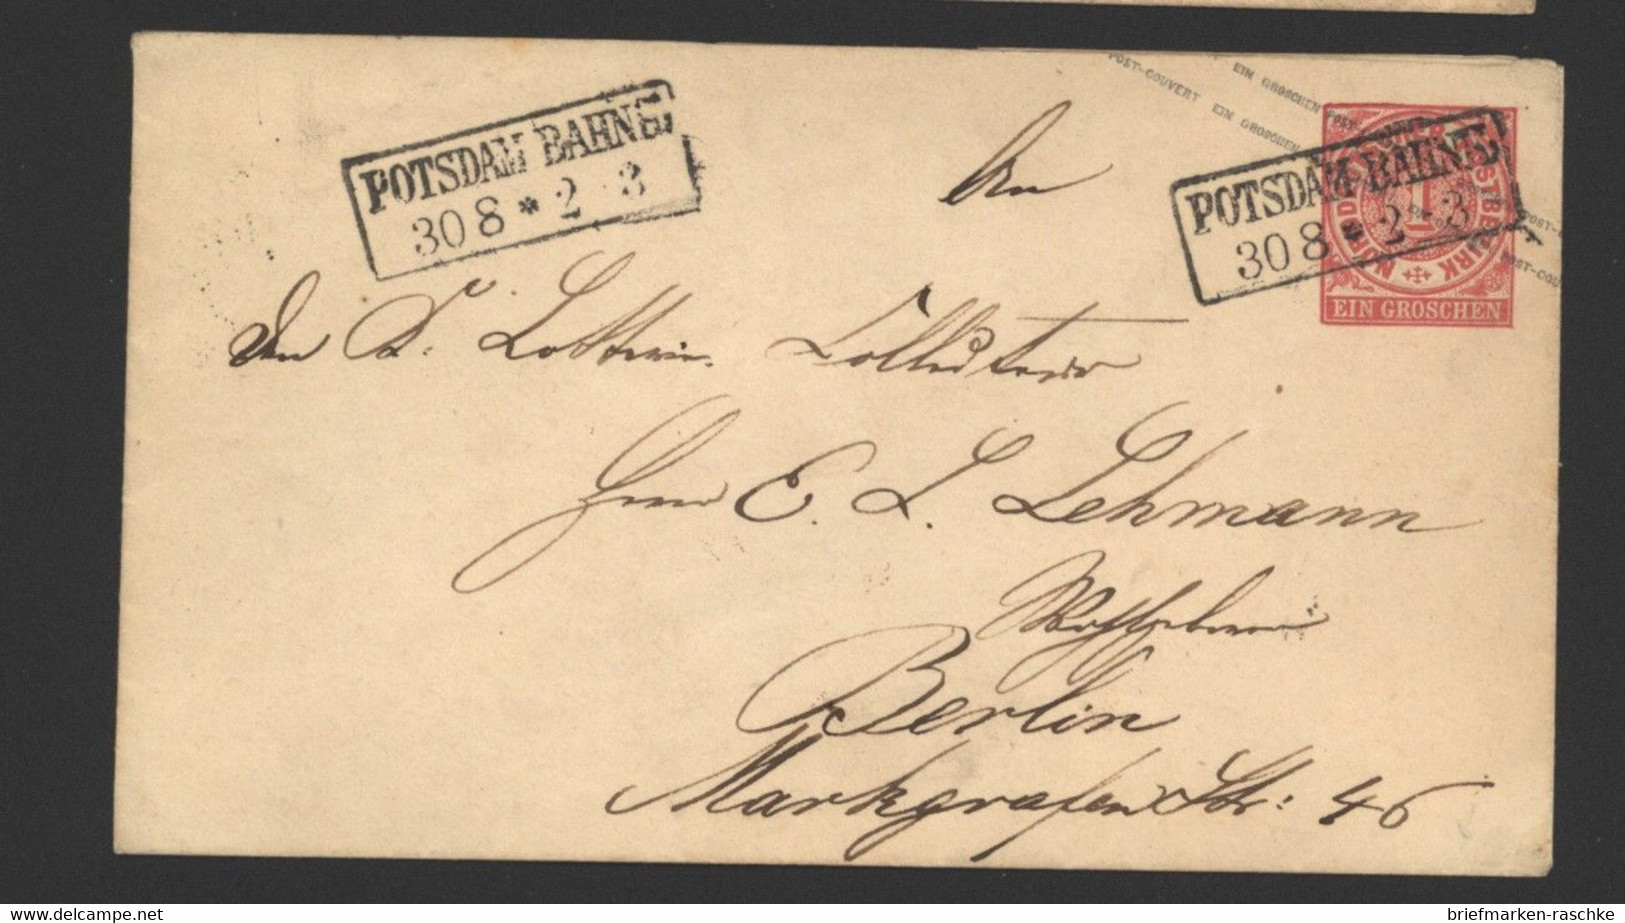 POST-COUVERT EIN GROSCHEN
EIN GROSCHEN POST-
POTSDAM BAHNH.
30 8 * 2-3
POTSDAM BAHNH.
30 8 * 2-3
NORDD. POSTBEZIRK
1
EIN GROSCHEN
POST-COU
An
den K. Lotterie Collecteur
Herrn E. L. Lehmann
Berlin
Markgrafen Str: 46
www.delcampe.net
briefmarken-raschke